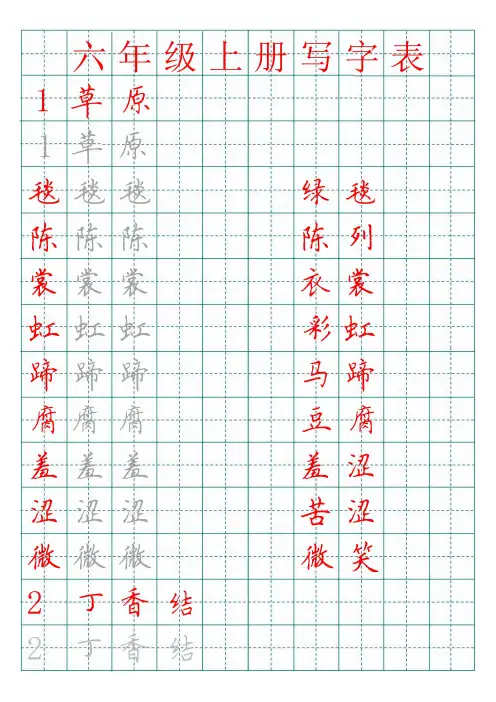 六年级上册写字表
1 草原
1 草原
毯 毯 毯 绿毯
陈 陈 陈 陈列
裳 裳 裳 衣裳
虹 虹 虹 彩虹
蹄 蹄 蹄 马蹄
腐 腐 腐 豆腐
羞 羞 羞 羞涩
涩 涩 涩 苦涩
微 微 微 微笑
2 丁香结
2 丁香结